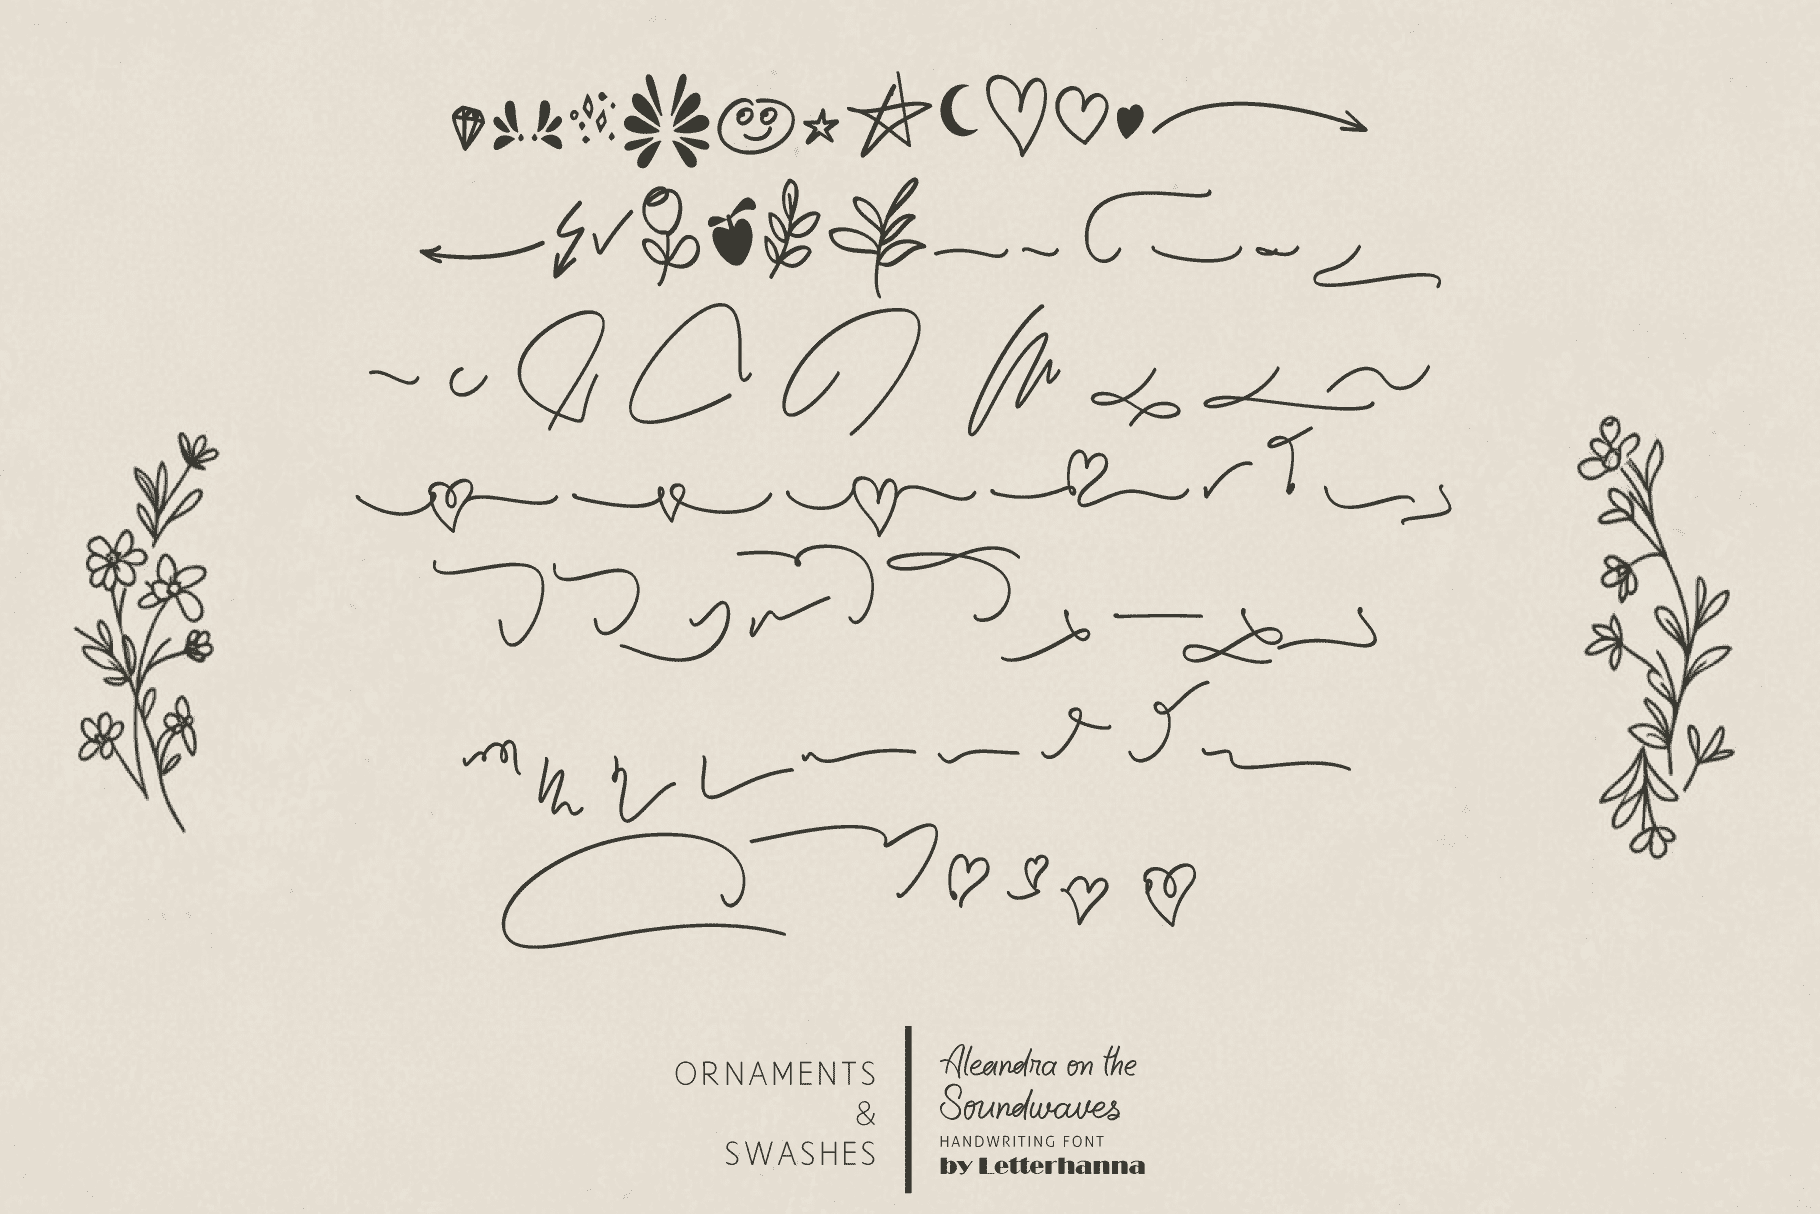 ORNAMENTS
&
SWASHES
Aleandra on the
Soundwaves
HANDWRITING FONT
by Letterhanna